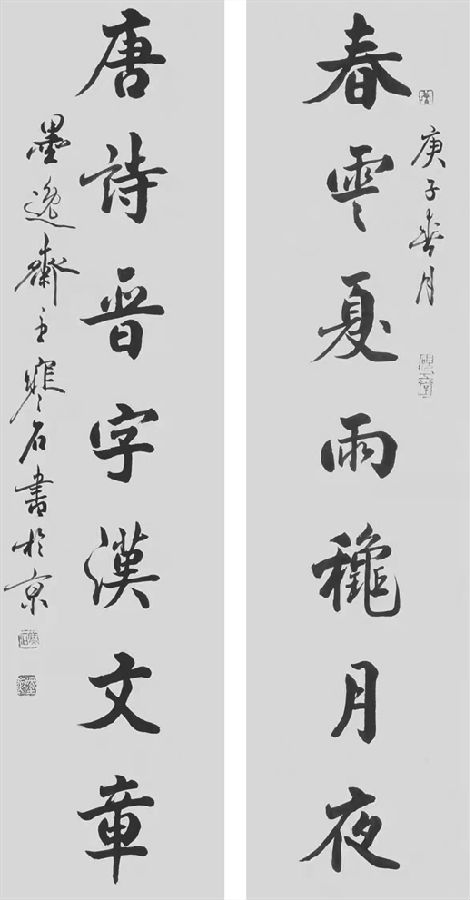 庚子春月
春雲夏雨穐月夜
唐詩晋字漢文章
墨逸齋主寒石書於京